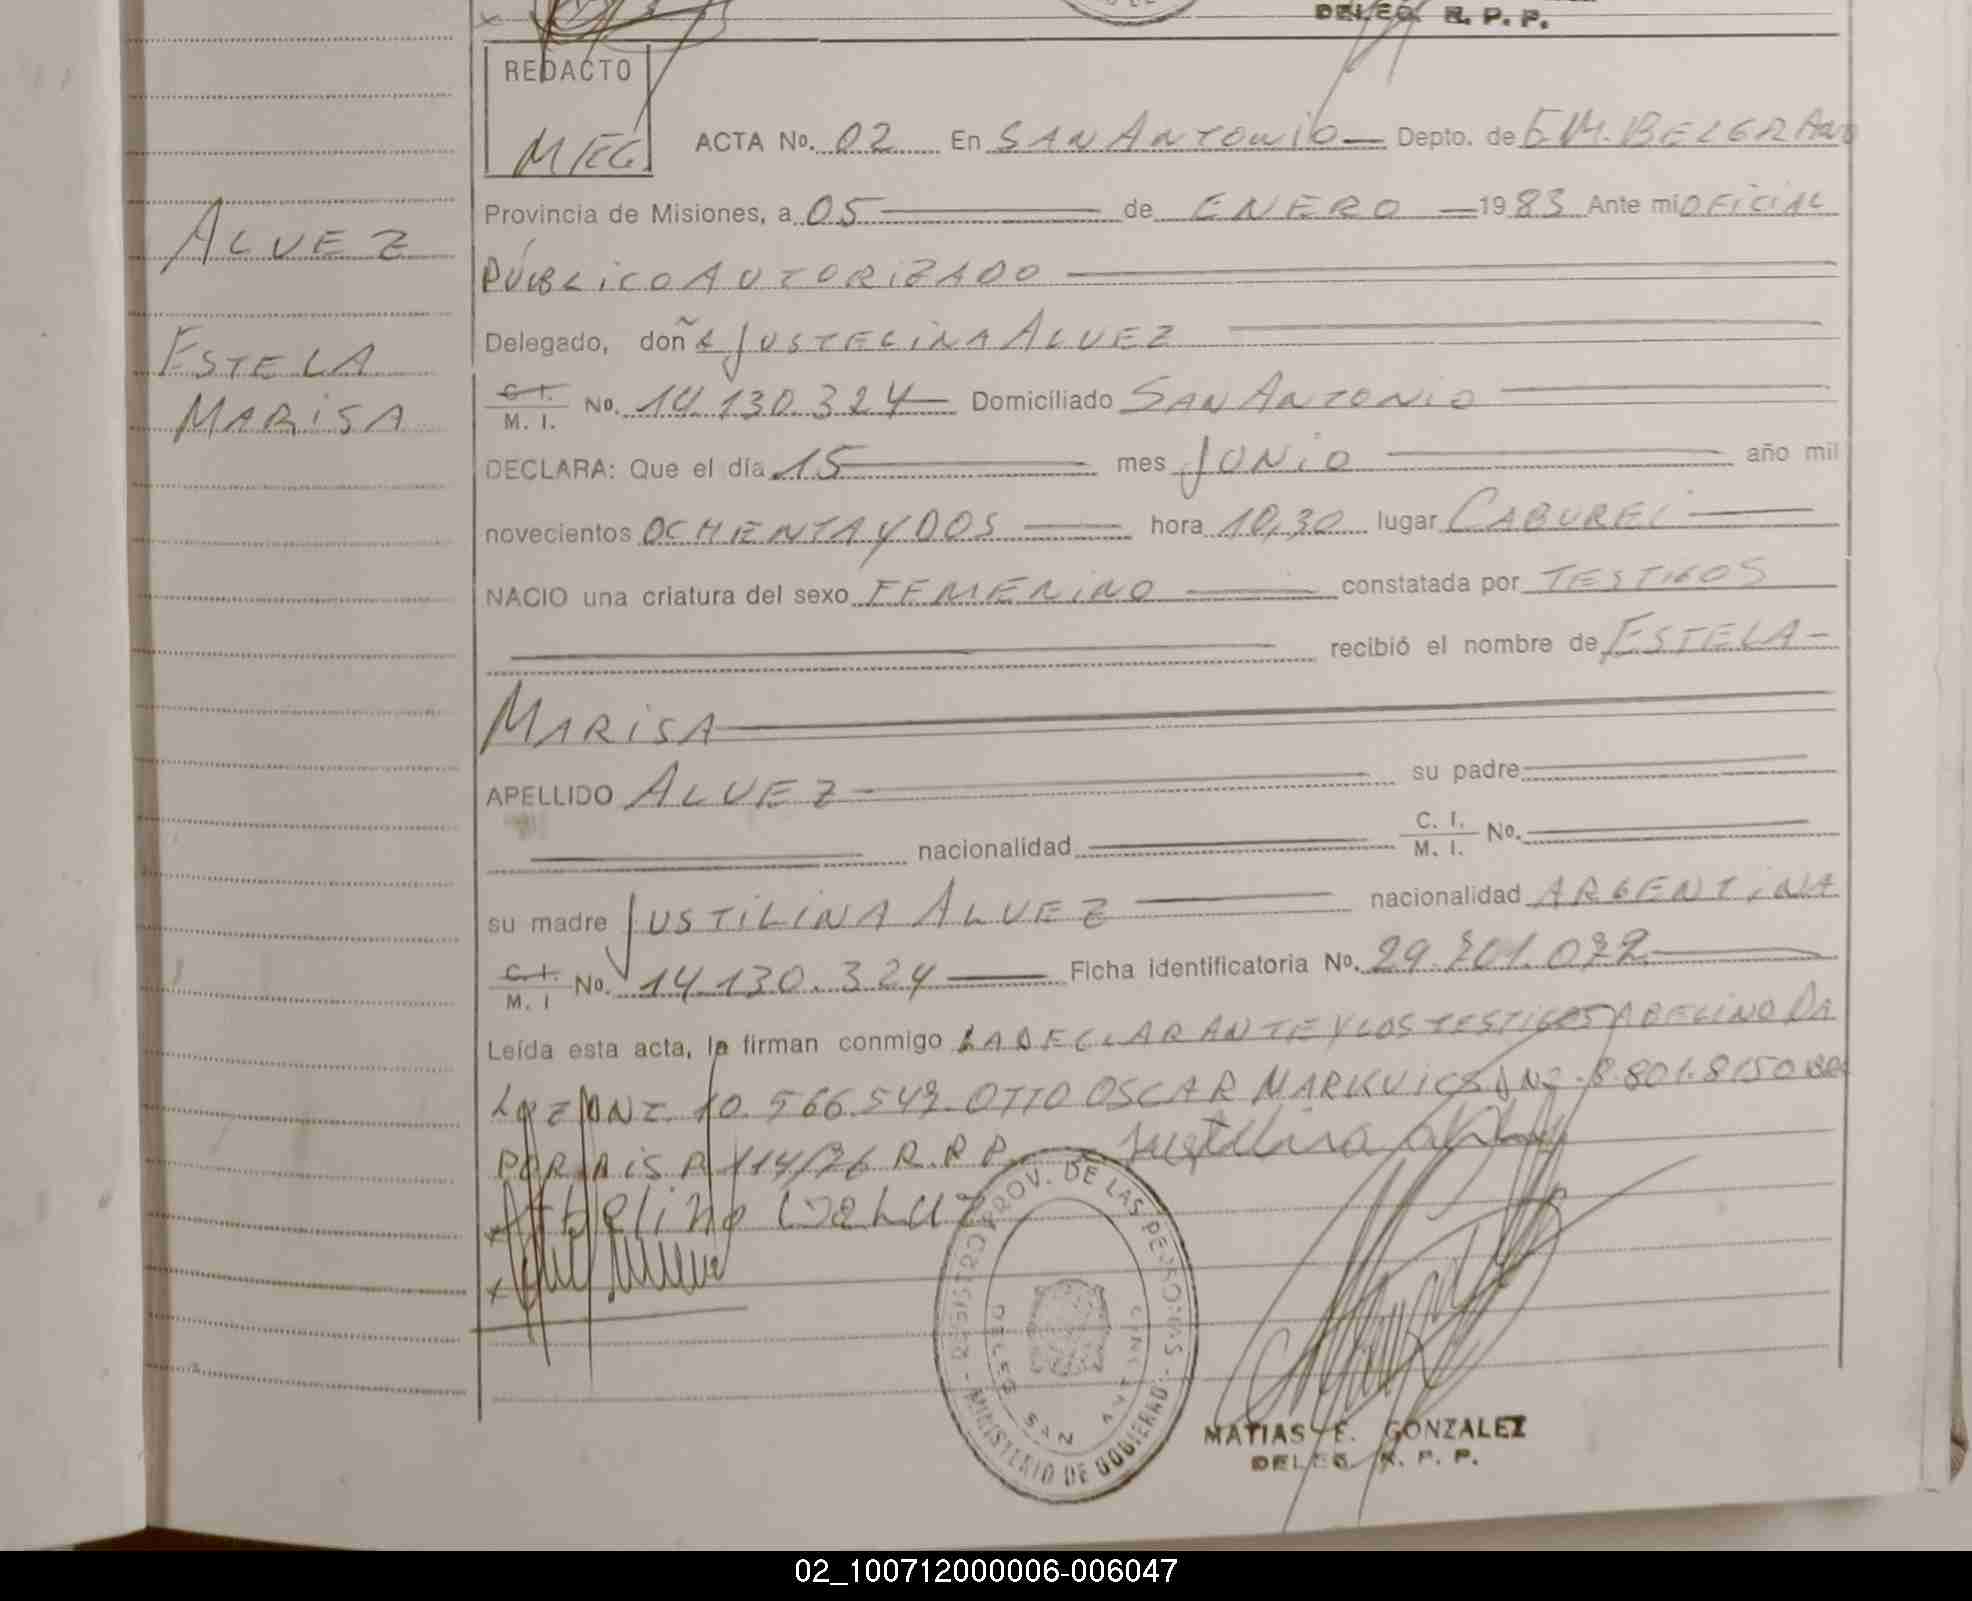 DELEG. R. P. P.
REDACTO
MEG
ACTA No. 02 En SAN ANTONIO Depto. de GM. BELGRANO
Provincia de Misiones, a 05 de ENERO 1983 Ante mi OFICIAL
PÚBLICO AUTORIZADO
ALVEZ
Delegado, doña JUSTELINA ALVEZ
ESTELA
C. I. / M. I. No. 14.130.324 Domiciliado SAN ANTONIO
MARISA
DECLARA: Que el día 15 mes JUNIO año mil
novecientos OCHENTA Y DOS hora 10,30 lugar CABUREI
NACIO una criatura del sexo FEMENINO constatada por TESTIGOS
recibió el nombre de ESTELA
MARISA
APELLIDO ALVEZ su padre
nacionalidad C. I. / M. I. No.
su madre JUSTILINA ALVEZ nacionalidad ARGENTINA
C. I. / M. I No. 14.130.324 Ficha identificatoria No.
Leída esta acta, la firman conmigo LA DECLARANTE Y LOS TESTIGOS ABELINO DA
OTTO OSCAR
POR R.P.P.
Abelino Da Luz
REGISTRO PROV. DE LAS PERSONAS
DELEG. SAN ANTONIO
MINISTERIO DE GOBIERNO
MATIAS E. GONZALEZ
DELEG. R. P. P.
02_100712000006-006047